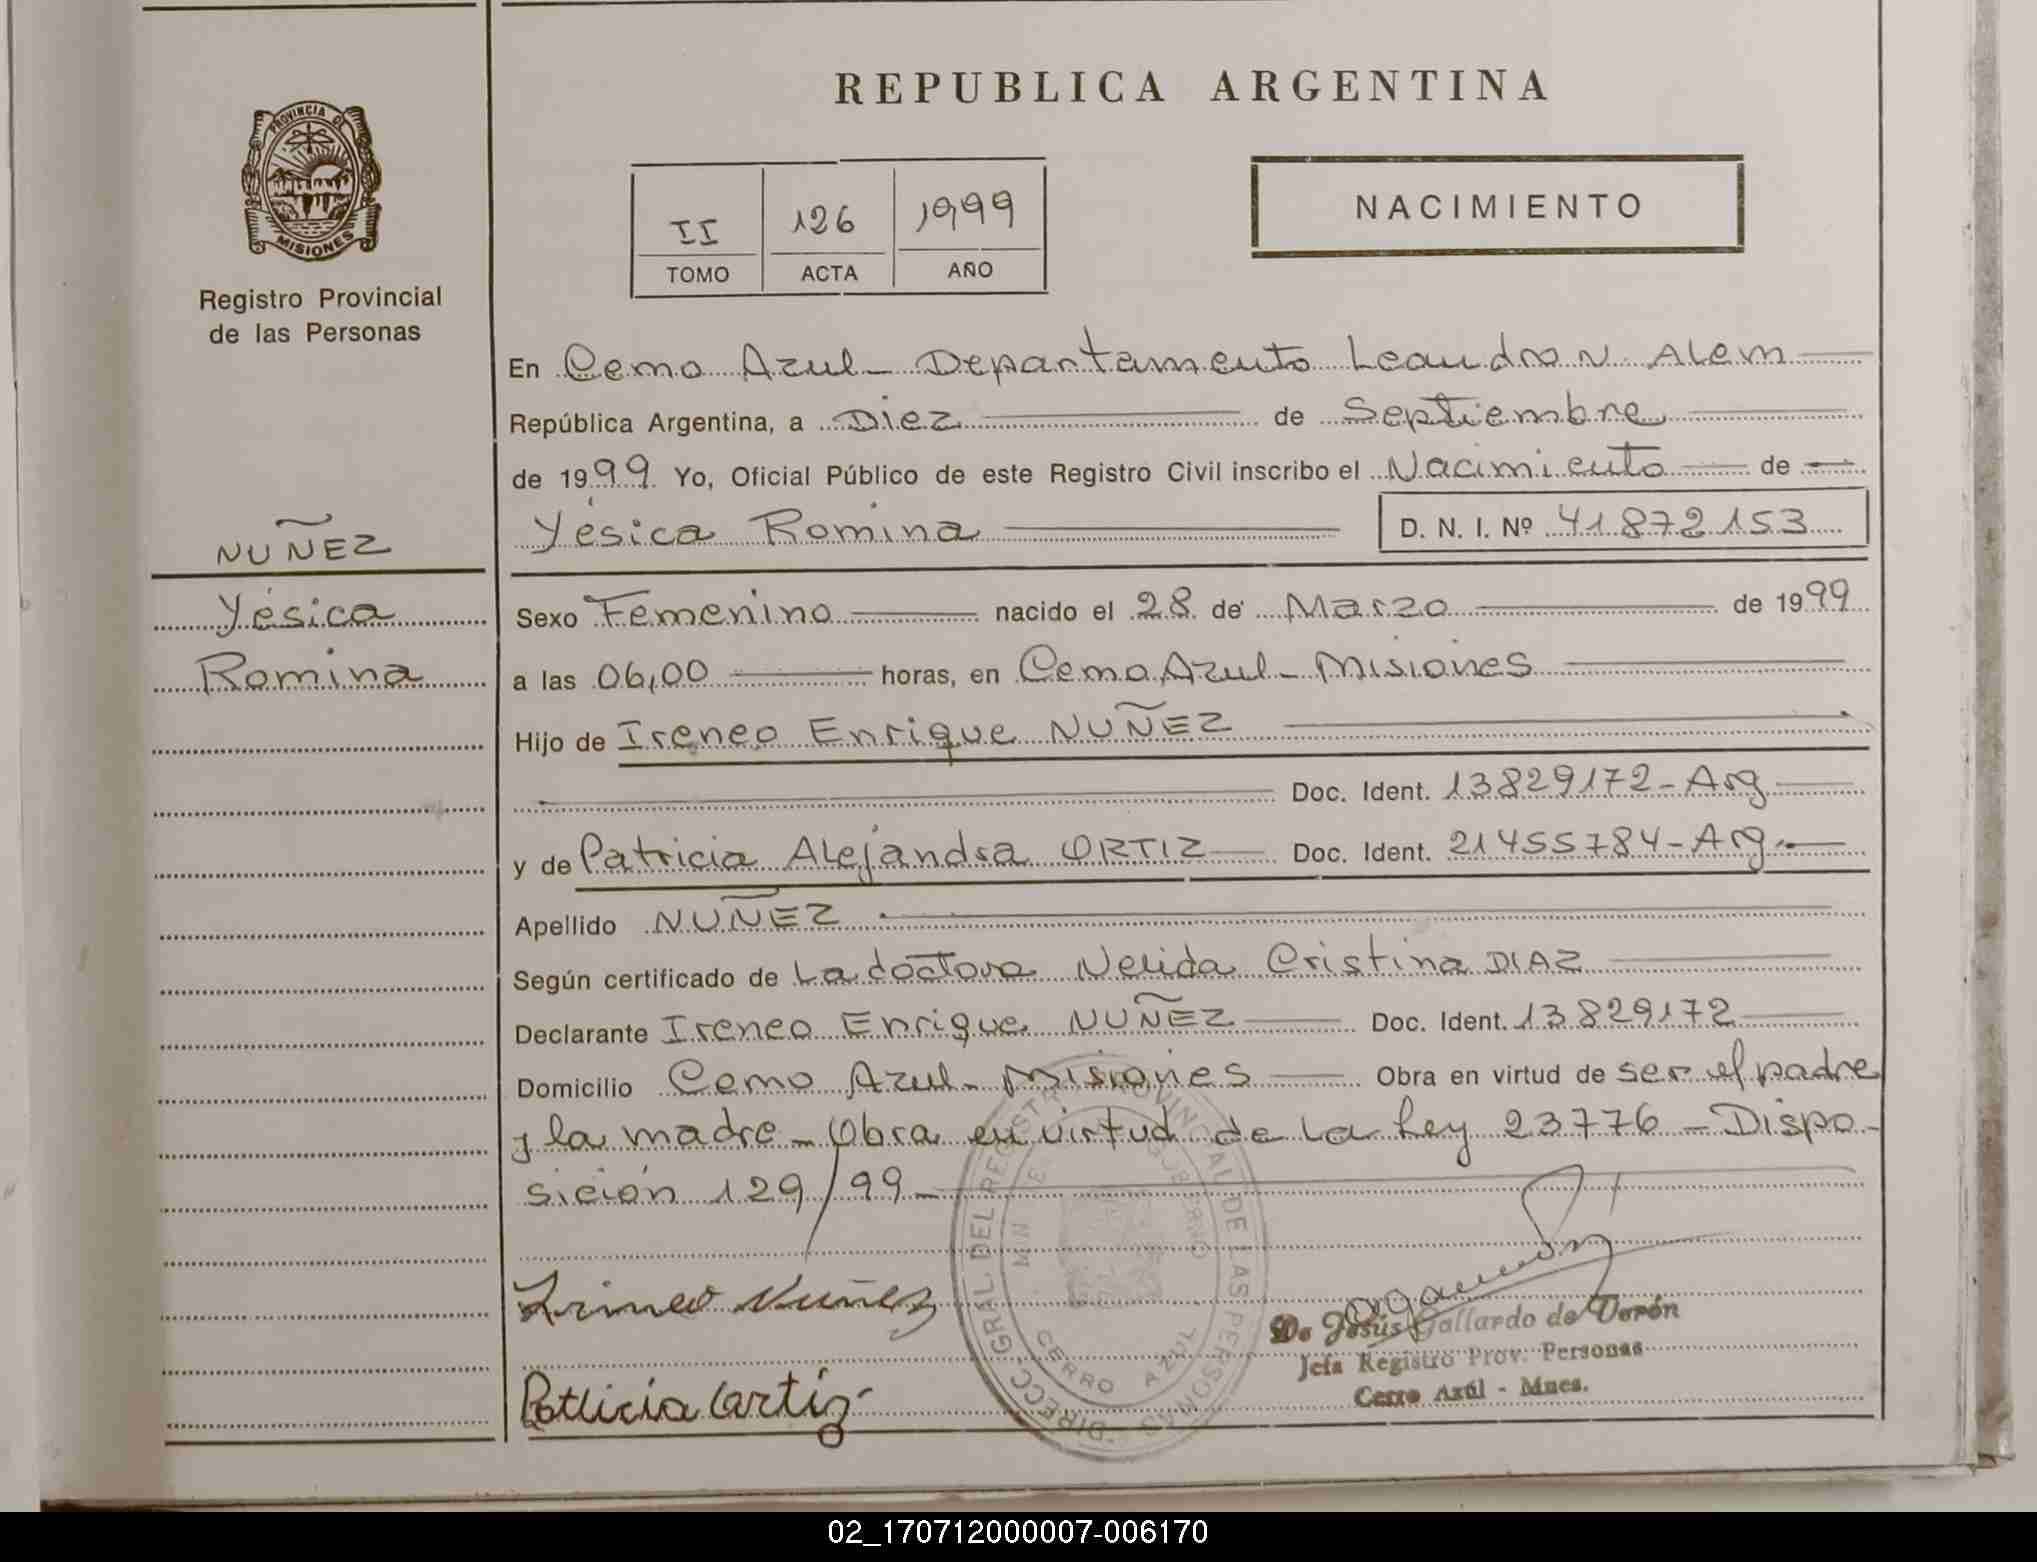 PROVINCIA DE
MISIONES
Registro Provincial
de las Personas
NUÑEZ
Yésica
Romina
REPUBLICA ARGENTINA
II 126 1999
TOMO ACTA AÑO
NACIMIENTO
En Cerro Azul - Departamento Leandro N. Alem
República Argentina, a Diez de Septiembre
de 1999 Yo, Oficial Público de este Registro Civil inscribo el Nacimiento de
Yésica Romina D. N. I. Nº 41872153
Sexo Femenino nacido el 28 de Marzo de 1999
a las 06,00 horas, en Cerro Azul - Misiones
Hijo de Ireneo Enrique NUÑEZ
Doc. Ident. 13829172 - Arg
y de Patricia Alejandra ORTIZ Doc. Ident. 21455784 - Arg.
Apellido NUÑEZ
Según certificado de La doctora Nelida Cristina DIAZ
Declarante Ireneo Enrique NUÑEZ Doc. Ident. 13829172
Domicilio Cerro Azul - Misiones Obra en virtud de ser el padre
y la madre - Obra en virtud de la Ley 23776 - Dispo-
sición 129/99 -
DIRECC. GRAL. DEL REGISTRO PROVINCIAL DE LAS PERSONAS
GOBIERNO
CERRO AZUL
Irineo Nuñez
Patricia Ortiz
De Jesús Gallardo de Verón
Jefa Registro Prov. Personas
Cerro Azúl - Mnes.
02_170712000007-006170